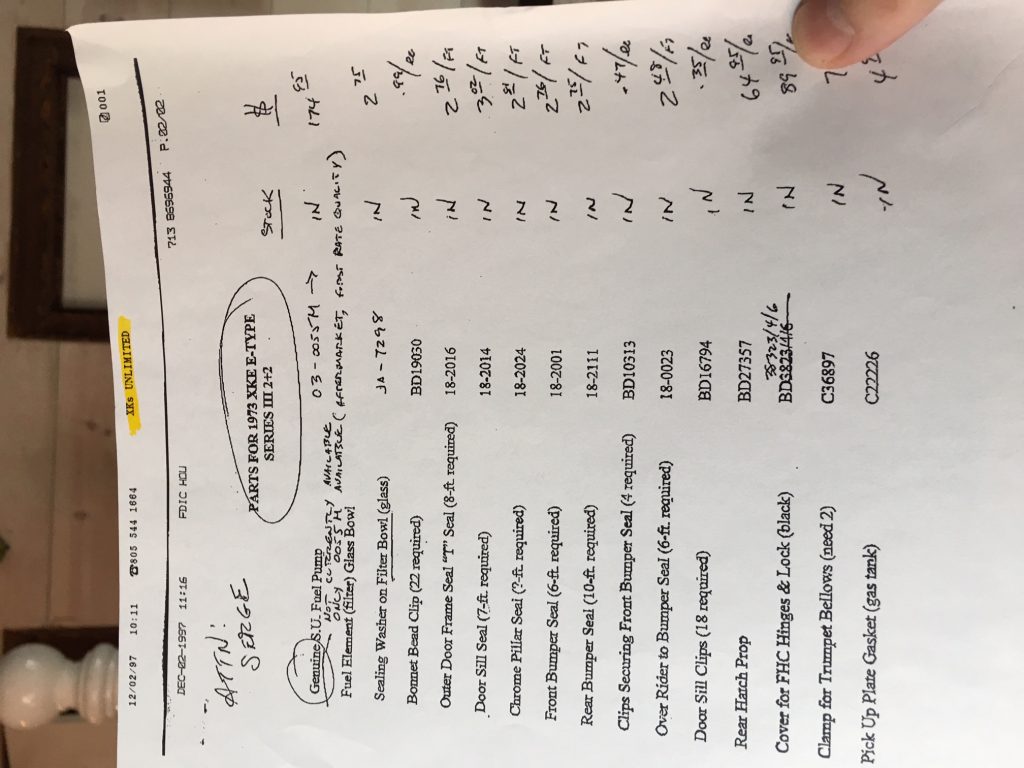 12/02/97 10:11 ☎805 544 1664 XKs UNLIMITED 001
DEC-02-1997 11:16 FDIC HOU 713 8696944 P.02/02
ATTN:
SERGE
PARTS FOR 1973 XKE E-TYPE
SERIES III 2+2
STOCK $
Genuine S.U. Fuel Pump 03-0055M → IN 174 95
NOT CURRENTLY AVAILABLE
ONLY 0055M AVAILABLE (AFTERMARKET, FIRST RATE QUALITY)
Fuel Element (filter) Glass Bowl
Sealing Washer on Filter Bowl (glass) JA-7298 IN 2 75
Bonnet Bead Clip (22 required) BD19030 IN .99/ea
Outer Door Frame Seal "T" Seal (8-ft. required) 18-2016 IN 2 76/FT
Door Sill Seal (7-ft. required) 18-2014 IN 3 02/FT
Chrome Pillar Seal (?-ft. required) 18-2024 IN 2 81/FT
Front Bumper Seal (6-ft. required) 18-2001 IN 2 76/FT
Rear Bumper Seal (10-ft. required) 18-2111 IN 2 75/FT
Clips Securing Front Bumper Seal (4 required) BD10313 IN .47/ea
Over Rider to Bumper Seal (6-ft. required) 18-0023 IN 2 48/FT
Door Sill Clips (18 required) BD16794 IN .35/ea
Rear Hatch Prop BD27357 IN 64 95/ea
38323/4/6
Cover for FHC Hinges & Lock (black) BD3823/4/6 IN 89 95/
Clamp for Trumpet Bellows (need 2) C36897 IN 7
Pick Up Plate Gasket (gas tank) C22226 IN 4